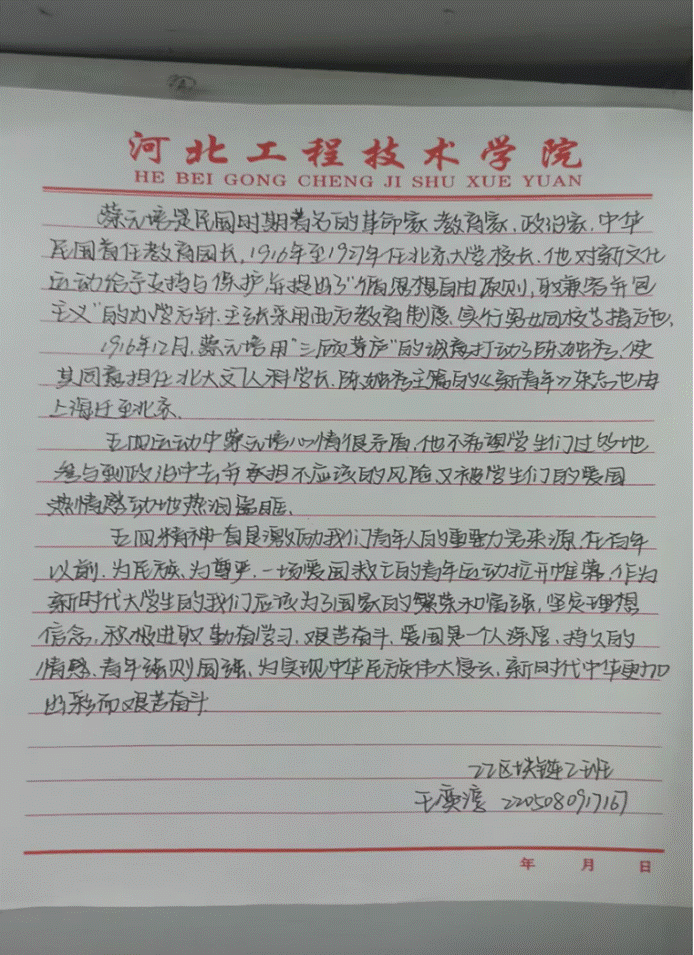 河北工程技术学院
HE BEI GONG CHENG JI SHU XUE YUAN
蔡元培是民国时期著名的革命家、教育家、政治家,中华
民国首任教育园长,1916年至1927年任北京大学校长,他对新文化
运动给予支持与保护,并提出了"循思想自由原则,取兼容并包
主义"的办学方针.主张采用西方教育制度,实行男女同校等措施.
1916年12月,蔡元培用"三顾茅庐"的诚意打动了陈独秀,使
其同意担任北大文人科学长,陈独秀主篇的《新青年》杂志也由
上海迁至北京.
五四运动中蔡元培心情很矛盾,他不希望学生们过多地
参与到政治中去并承担不应该的风险,又被学生们的爱国
热情感动地热泪盈眶.
五四精神一直是激励我们青年人的重要力量来源,在百年
以前,为民族,为尊严,一场爱国救亡的青年运动拉开帷幕,作为
新时代大学生的我们应该为了国家的繁荣和富强,坚定理想
信念,积极进取,勤奋学习,艰苦奋斗,爱国是一个人深厚、持久的
情感,青年强则国强,为实现中华民族伟大复兴,新时代中华更加
出彩而艰苦奋斗
22区块链2班
王 2205080917167
年 月 日